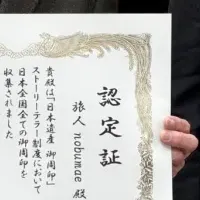 認定証
旅人 nobumae 殿
貴殿は「日本遺産 御周印」
ストーリーテラー制度において
日本全国全ての御周印を
収集されました